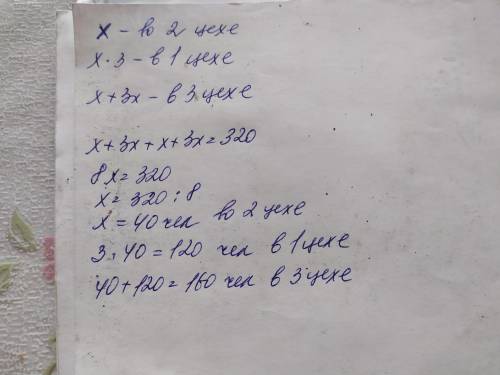 x - во 2 цехе
x·3 - в 1 цехе
x+3x - в 3 цехе
x+3x+x+3x=320
8x=320
x=320:8
x=40 чел во 2 цехе
3·40=120 чел в 1 цехе
40+120=160 чел в 3 цехе